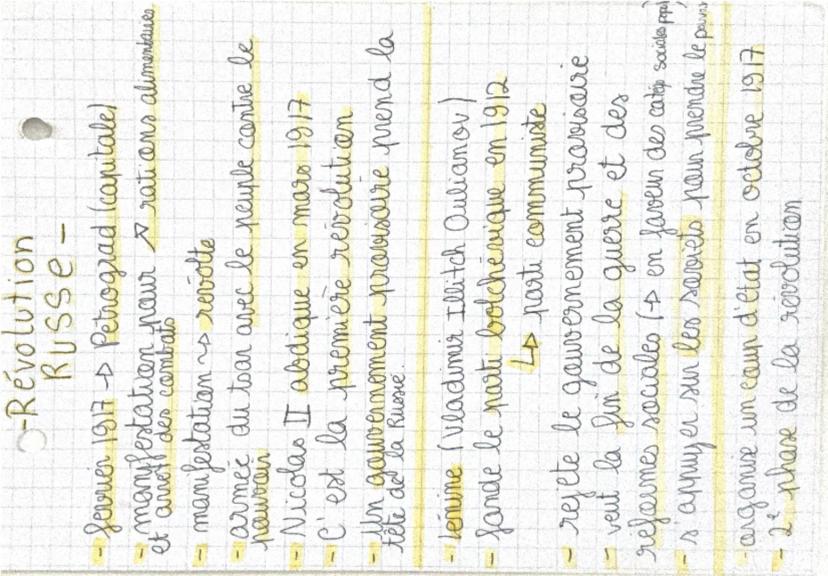 - Révolution
RUSSE -
- février 1917 → Pétrograd (capitale)
- manifestation pour ↗ rations alimentaires
et arrêt des combats
- manifestation ~> révolte
- armée du tsar avec le peuple contre le
pouvoir
- Nicolas II abdique en mars 1917
- C'est la première révolution
- Un gouvernement provisoire prend la
tête de la Russie.
- Lénine (Vladimir Illitch Oulianov)
- fonde le parti bolchévique en 1912
↳ parti communiste
- rejète le gouvernement provisoire
- veut la fin de la guerre et des
reformes sociales (→ en faveur des catég sociales pop)
- s'appuyer sur les soviets pour prendre le pouvoir
- organise un coup d'état en octobre 1917
- 2e phase de la révolution